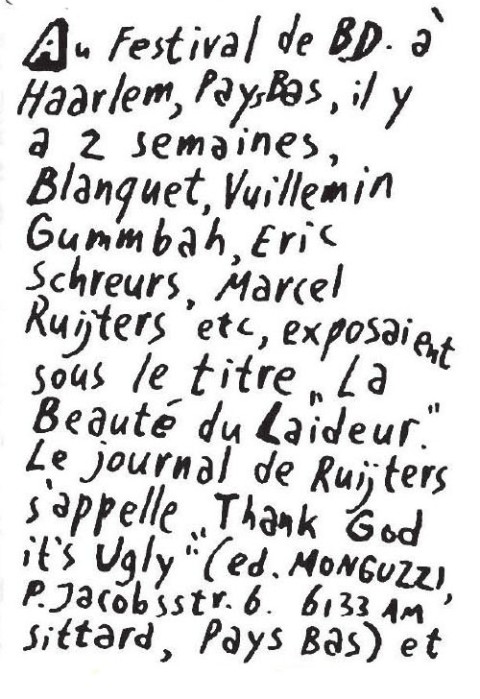 Au Festival de BD. à
Haarlem, Pays Bas, il y
a 2 semaines,
Blanquet, Vuillemin
Gummbah, Eric
Schreurs, Marcel
Ruijters etc, exposaient
sous le titre „La
Beauté du Laideur."
Le journal de Ruijters
s'appelle „Thank God
it's Ugly" (ed. MONGUZZI,
P. Jacobsstr. 6. 6133 AM
Sittard, Pays Bas) et